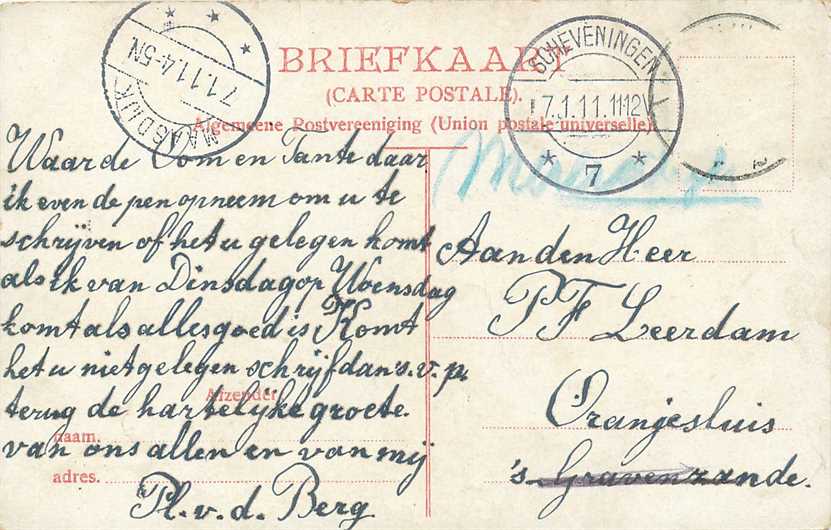 BRIEFKAART
(CARTE POSTALE).
Algemeene Postvereeniging (Union postale universelle)
MAASDIJK
7.1.11.4-5N
SCHEVENINGEN
7.1.11.11-12V
7
Waarde Oom en Tante daar
ik even de pen opneem om u te
schrijven of het u gelegen komt
als ik van Dinsdag op Woensdag
komt als alles goed is Komt
het u niet gelegen schrijf dan s.v.p.
Afzender
terug de hartelijke groete.
van ons allen en van mij
naam.
adres.
Pl. v. d. Berg
Aan den Heer
P F Leerdam
Oranjesluis
's Gravenzande.